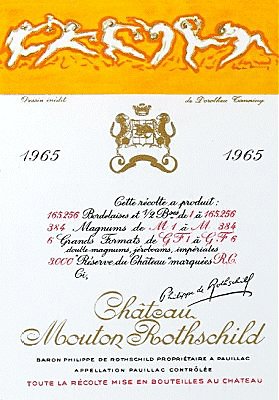 Dessin inédit de Dorothea Tanning
1965 1965
Cette récolte a produit:
165.256 Bordelaises et 1/2 Bses de 1 à 165.256
384 Magnums de M 1 à M 384
6 Grands Formats de G F 1 à G F 6
double-magnums, jéroboams, impériales
3000 "Réserve du Château" marquées R.C.
Ci,
Philippe de Rothschild
Château
Mouton Rothschild
BARON PHILIPPE DE ROTHSCHILD PROPRIÉTAIRE A PAUILLAC
APPELLATION PAUILLAC CONTRÔLÉE
TOUTE LA RÉCOLTE MISE EN BOUTEILLES AU CHÂTEAU